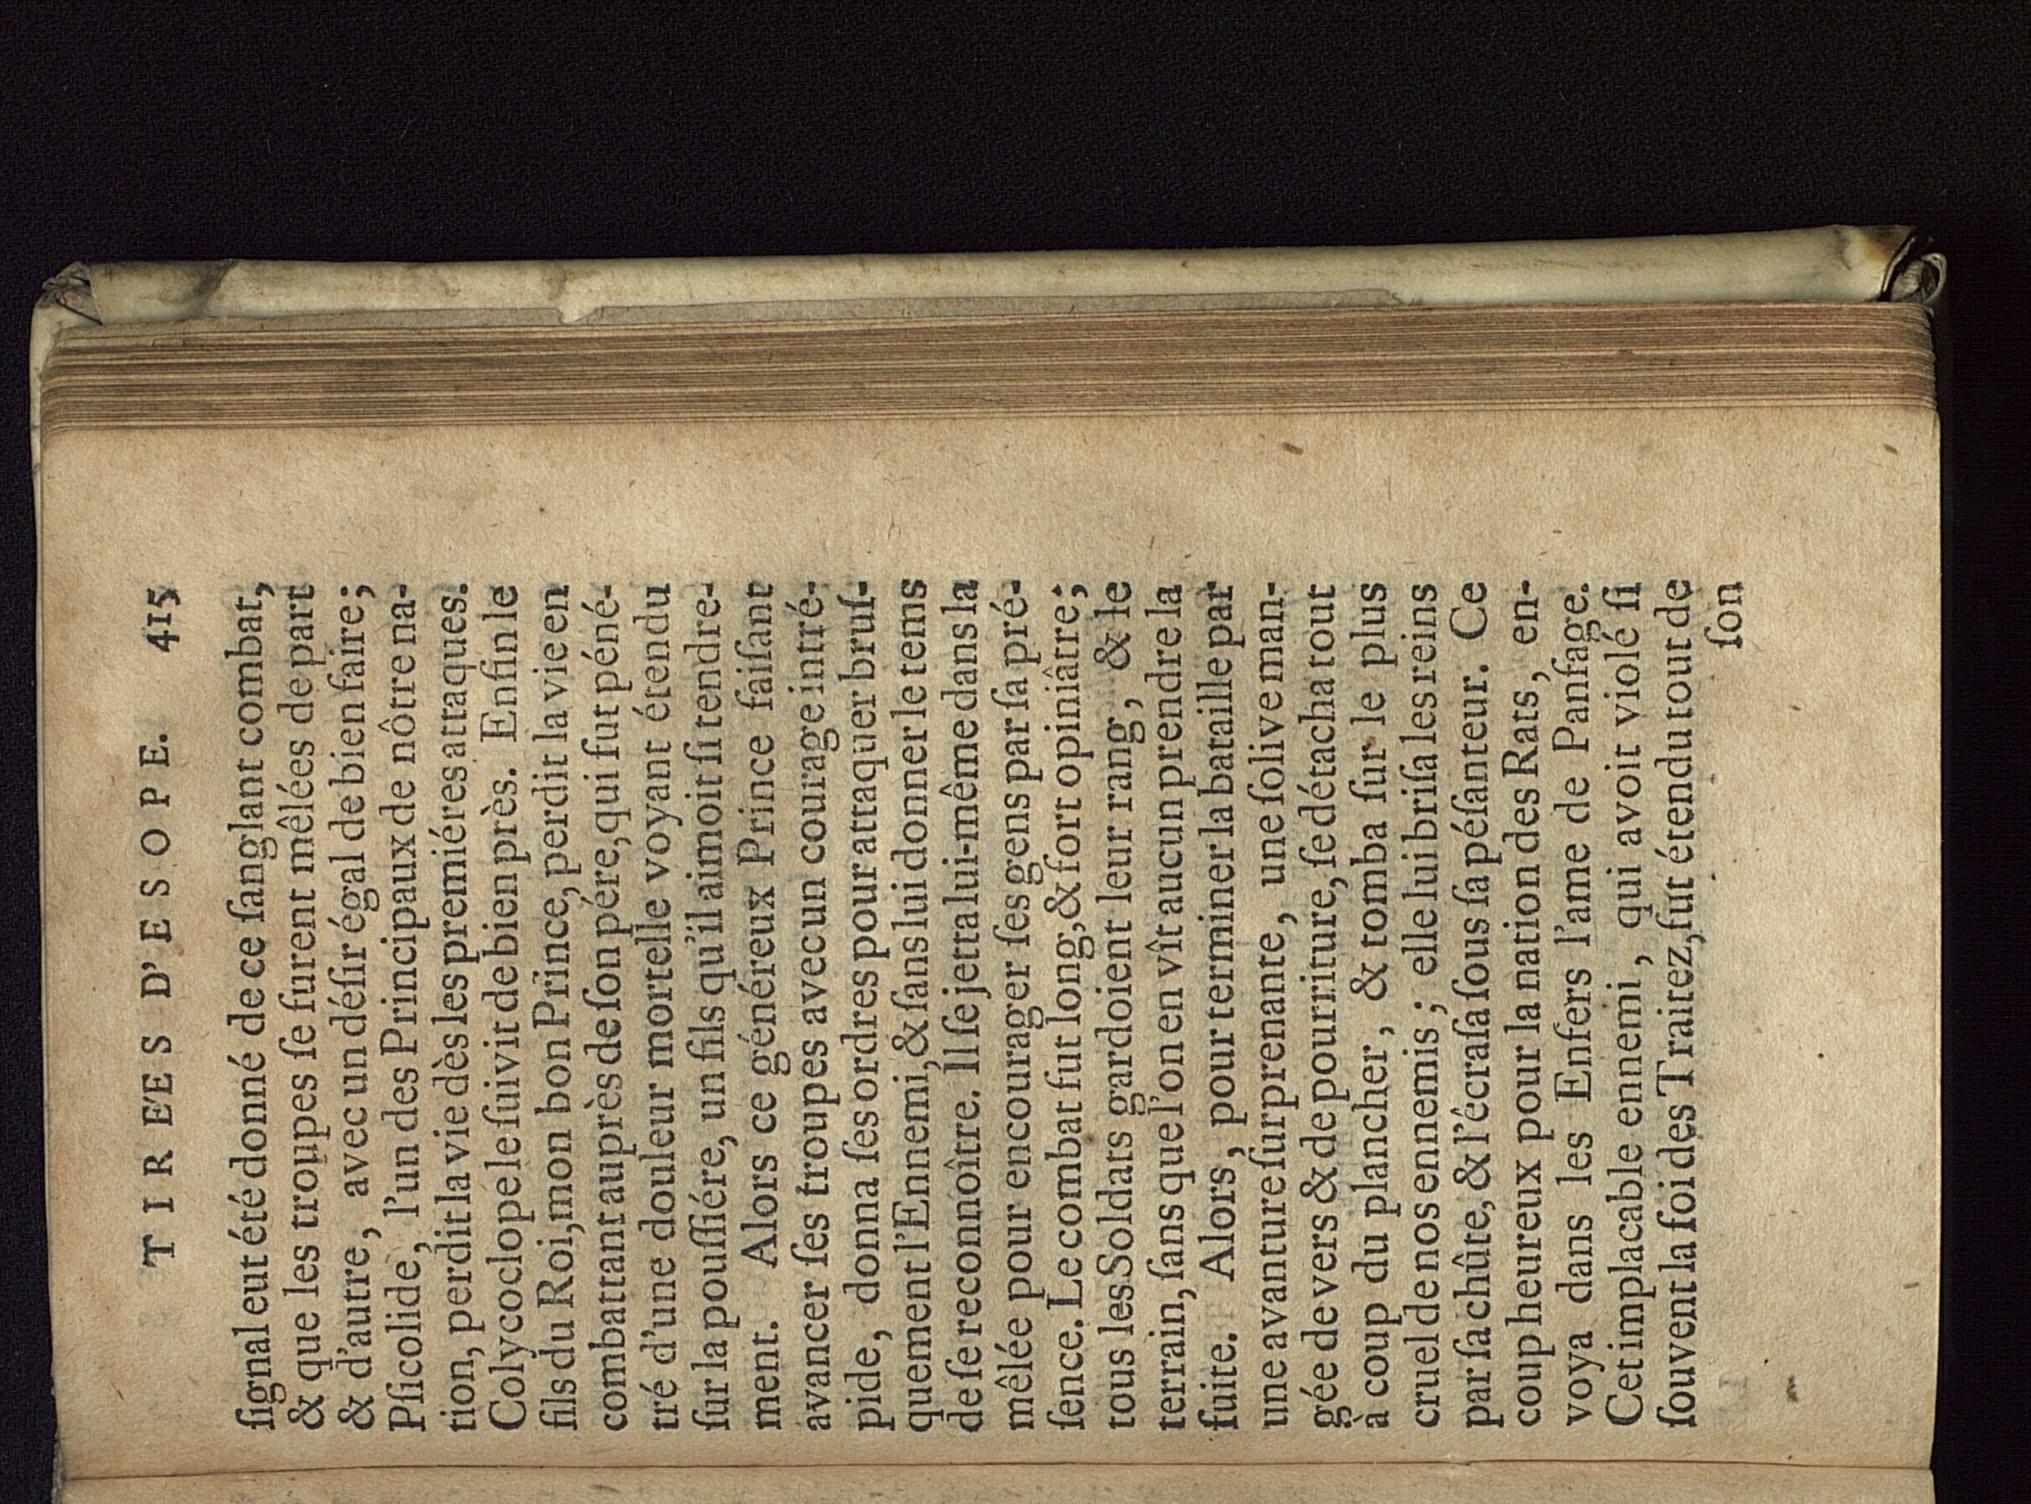 TIRÉES D'ESOPE. 415
ſignal eut été donné de ce ſanglant combat,
& que les troupes ſe furent mêlées de part
& d'autre, avec un déſir égal de bien faire;
Pſicolide, l'un des Principaux de nôtre na-
tion, perdit la vie dès les premiéres attaques.
Colycoclope le ſuivit de bien près. Enfin le
fils du Roi, mon bon Prince, perdit la vie en
combattant auprès de ſon pére, qui fut péné-
tré d'une douleur mortelle voyant étendu
ſur la pouſſiére, un fils qu'il aimoit ſi tendre-
ment. Alors ce généreux Prince faiſant
avancer ſes troupes avec un courage intré-
pide, donna ſes ordres pour attaquer bruſ-
quement l'Ennemi, & ſans lui donner le tems
de ſe reconnoître. Il ſe jetta lui-même dans la
mêlée pour encourager ſes gens par ſa pré-
ſence. Le combat fut long, & fort opiniâtre;
tous les Soldats gardoient leur rang, & le
terrain, ſans que l'on en vît aucun prendre la
fuite. Alors, pour terminer la bataille par
une avanture ſurprenante, une ſolive man-
gée de vers & de pourriture, ſe détacha tout
à coup du plancher, & tomba ſur le plus
cruel de nos ennemis; elle lui briſa les reins
par ſa chûte, & l'écraſa ſous ſa péſanteur. Ce
coup heureux pour la nation des Rats, en-
voya dans les Enfers l'ame de Panfage.
Cet implacable ennemi, qui avoit violé ſi
ſouvent la foi des Traitez, fut étendu tout de
ſon